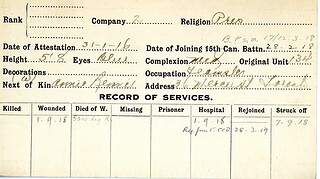 Rank Company 2 Religion Pres
17/12.3.18
Date of Attestation 31-1-16 Date of Joining 15th Can. Battn. 28-2-18
Height 5'8 Eyes Blue Complexion med Original Unit 134
Decorations Occupation Teamster
Next of Kin Address
RECORD OF SERVICES.
Killed Wounded Died of W. Missing Prisoner Hospital Rejoined Struck off
1.9.18 1.9.18 7-9.18
28-3.19